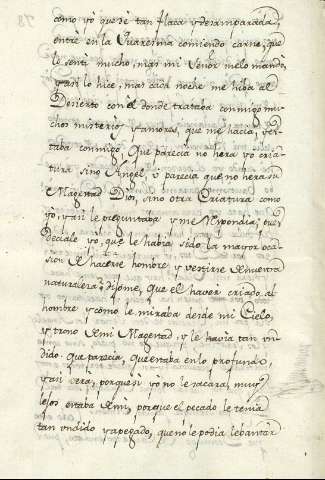 como yò quede tan flaca y desamparada,
entrè en la Quaresma comiendo carne, que
lo senti mucho, mas mi Señor melo mandò,
y asi lo hice, mas cada noche me hiba al
Desierto con èl donde trataba conmigo mu-
chos misterios, y amores, que me hacia, y es-
taba conmigo, Que parecia no hera yò cria-
tura sino Angel, ò parecia que no hera su
Magestad Dios, sino otra Criatura como
yò, y asi le preguntaba y me Respondia; pues
Deciale yò, que le habia sido la mayor oca-
sion de hacerse hombre, y vestirse de nueva
naturaleza; dijome, Que el haver criado al
hombre y como le miraba desde mi Cielo,
y trono de mi Magestad, y le havia tan un-
dido, que parecia, que estaba en lo profundo,
y asi serà, porque si yò no le sacara, muy
lejos estaba de mi, porque el pecado le tenia
tan undido y apegado, que nò le podia lebantar